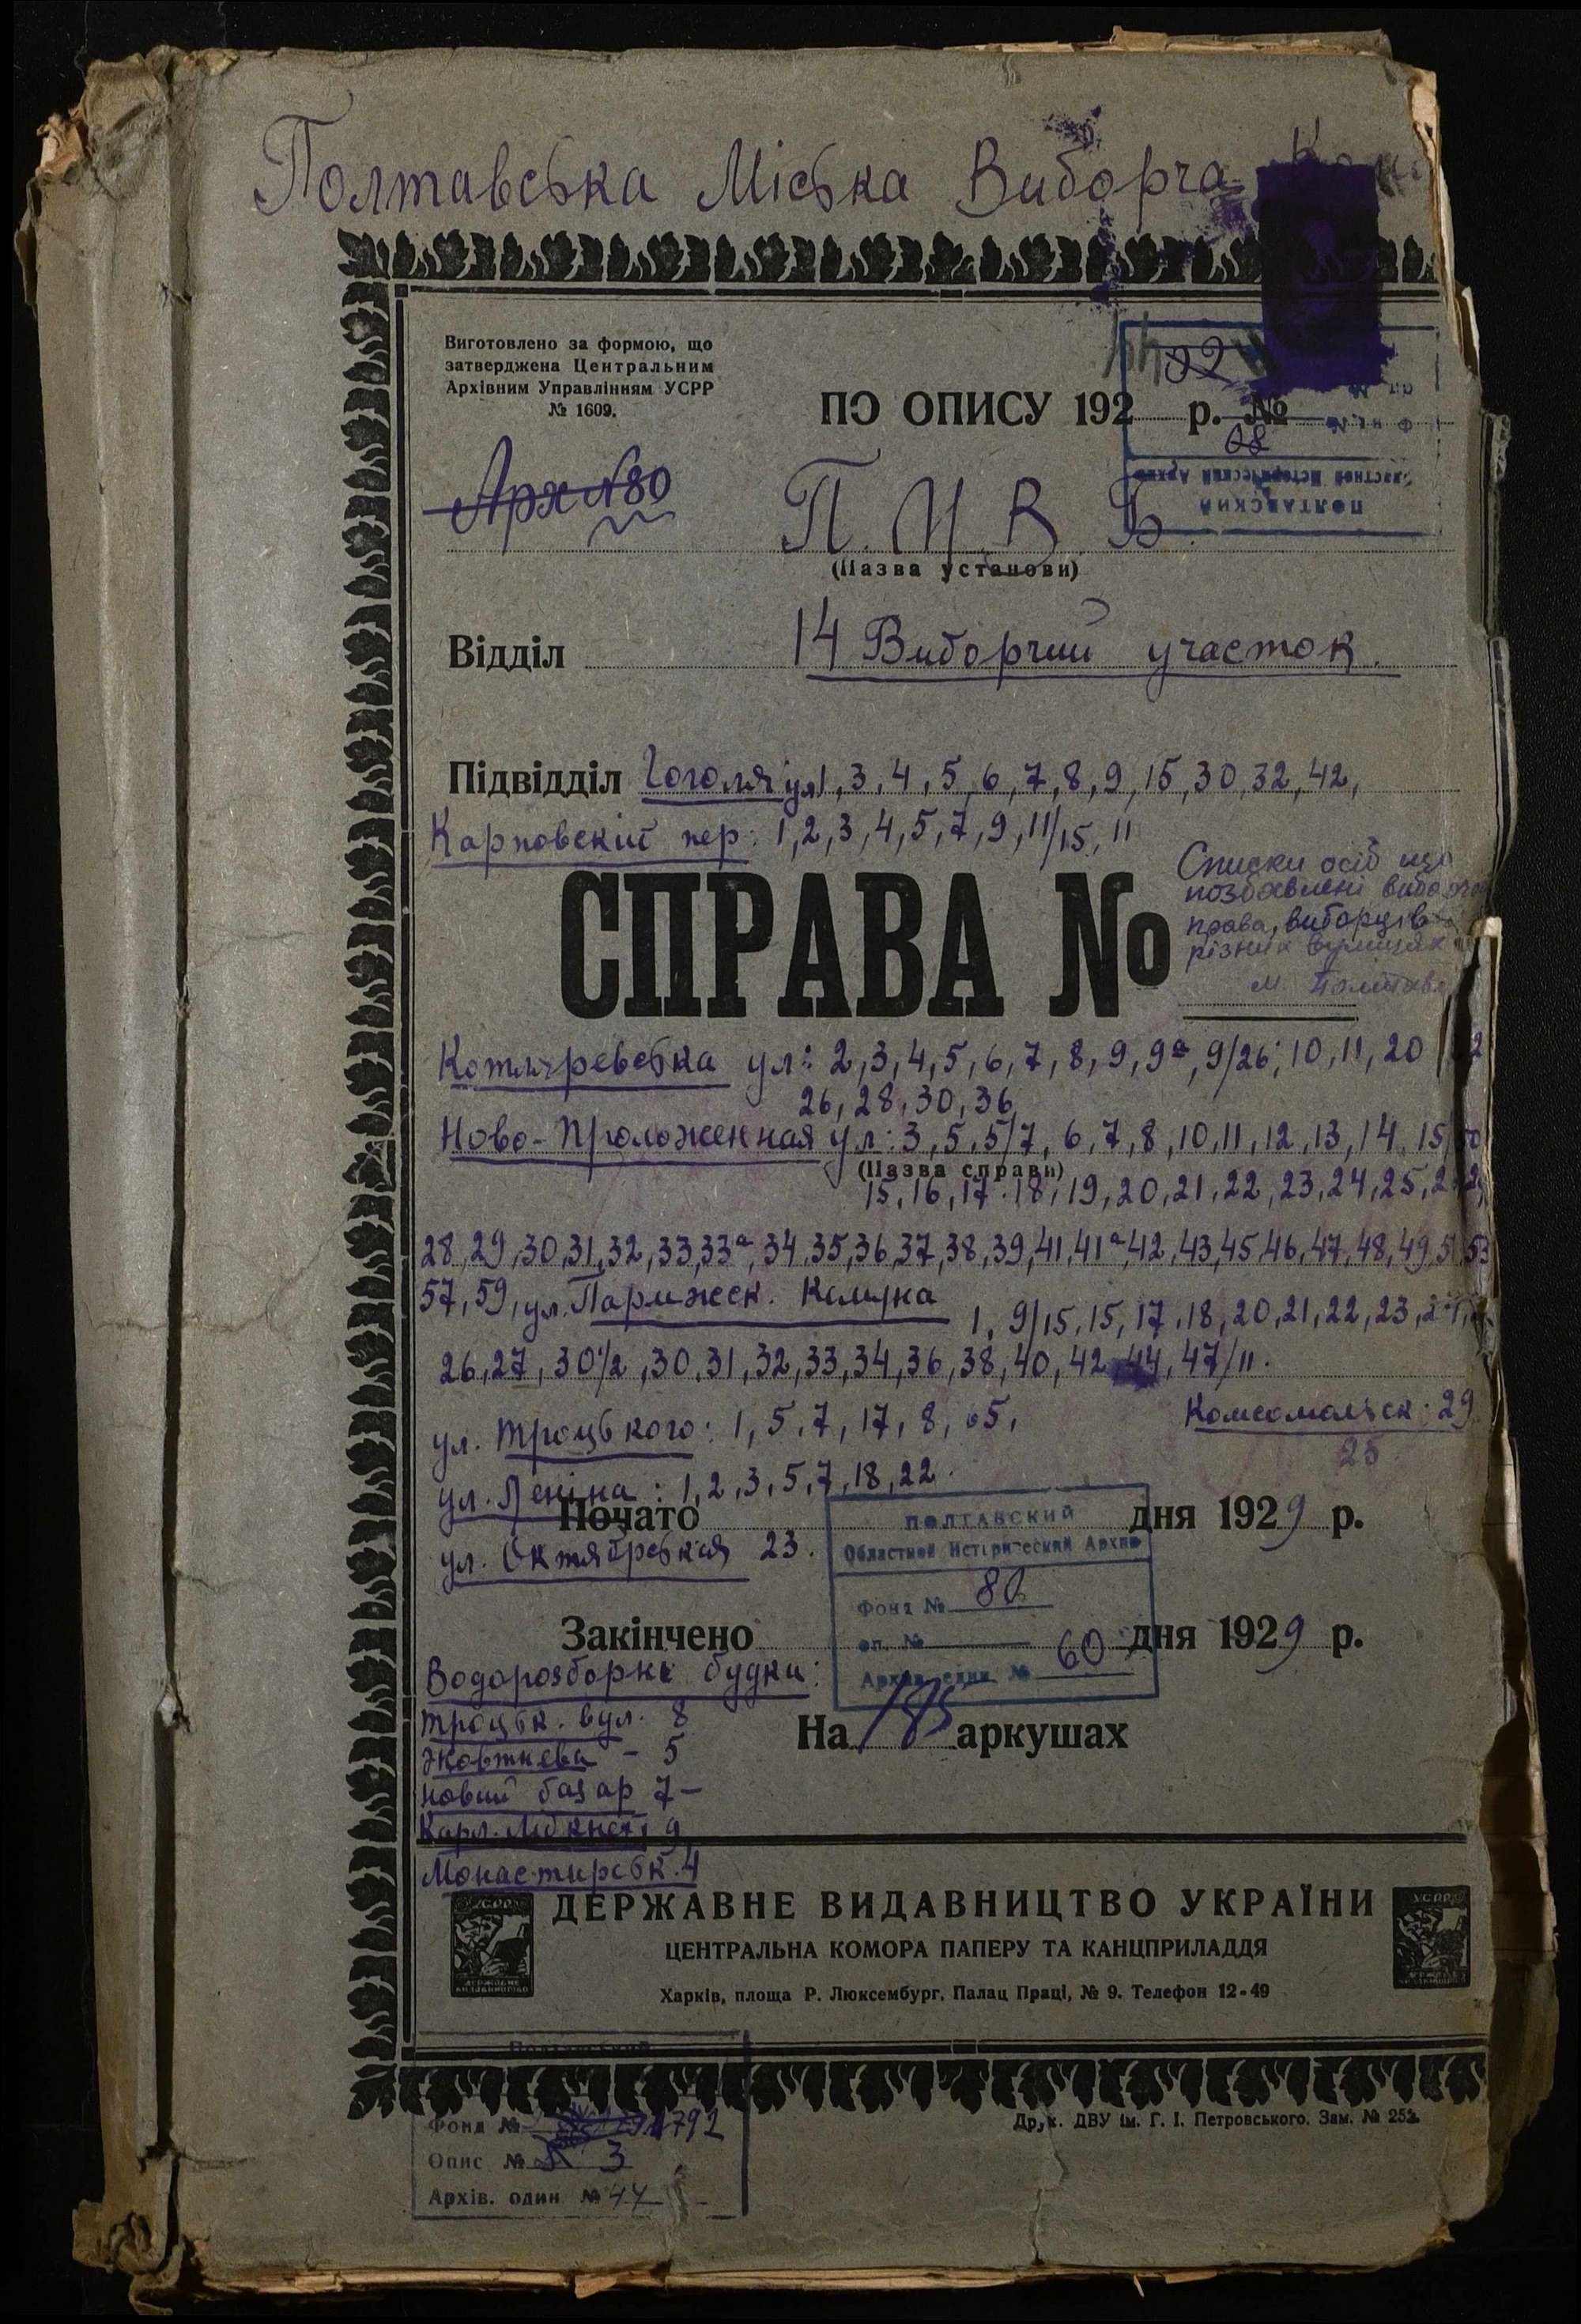 Полтавська Міська Виборча
Виготовлено за формою, що
затверджена Центральним
Архівним Управлінням УСРР
№ 1609.
ПО ОПИСУ 192 р. №
Арх №80
ПОЛТАВСКИЙ
П. М. В. Б.
(Назва установи)
Відділ 14 Виборчий участок.
Підвідділ Гоголя ул 1, 3, 4, 5, 6, 7, 8, 9, 15, 30, 32, 42,
Карповскій пер: 1, 2, 3, 4, 5, 7, 9, 11/15, 11
Списки осіб що
позбавлені виборчого
права, виборців
різних вулицях
м. Полтави
СПРАВА №
Котляревська ул: 2, 3, 4, 5, 6, 7, 8, 9, 9а, 9/26, 10, 11, 20
26, 28, 30, 36
Ново-Проложенная ул: 3, 5, 5/7, 6, 7, 8, 10, 11, 12, 13, 14, 15
(Назва справи)
15, 16, 17, 18, 19, 20, 21, 22, 23, 24, 25,
28, 29, 30, 31, 32, 33, 33а, 34, 35, 36, 37, 38, 39, 41, 41а, 42, 43, 45, 46, 47, 48, 49, 51, 53
57, 59, ул. Парижск. Комуна 1, 9/15, 15, 17, 18, 20, 21, 22, 23,
26, 27, 30 1/2, 30, 31, 32, 33, 34, 36, 38, 40, 42, 44, 47/11.
ул. Троцького: 1, 5, 7, 17, 8, 65,
Комсомольск: 29
25
ул. Леніна: 1, 2, 3, 5, 7, 18, 22.
Почато дня 1929 р.
ул. Октябрський 23.
ПОЛТАВСКИЙ
Областной Исторический Архив
Фонд № 80
оп. №
Архив. един. № 60
Закінчено дня 1929 р.
Водорозборні будки:
Троцьк. вул. 8
Жовтнева - 5
Новий базар 7 -
Карл. Лібкнехт 9
Монастирськ. 4
На 185 аркушах
ДЕРЖАВНЕ ВИДАВНИЦТВО УКРАЇНИ
ЦЕНТРАЛЬНА КОМОРА ПАПЕРУ ТА КАНЦПРИЛАДДЯ
Харків, площа Р. Люксембург, Палац Праці, № 9. Телефон 12-49
Друк. ДВУ ім. Г. І. Петровського. Зам. № 252.
Фонд № 1792
Опис № 3
Архів. один № 44